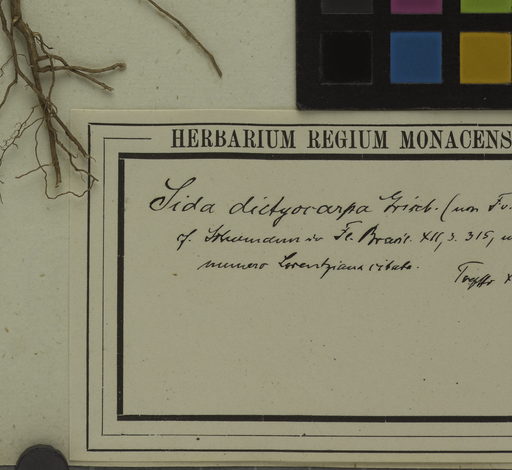 HERBARIUM REGIUM MONACENS
Sida dictyocarpa Griseb. (non Fo.
cf. Schumann in Fl. Brasil. XII, 3. 315, u
numero Lorentziana citato.